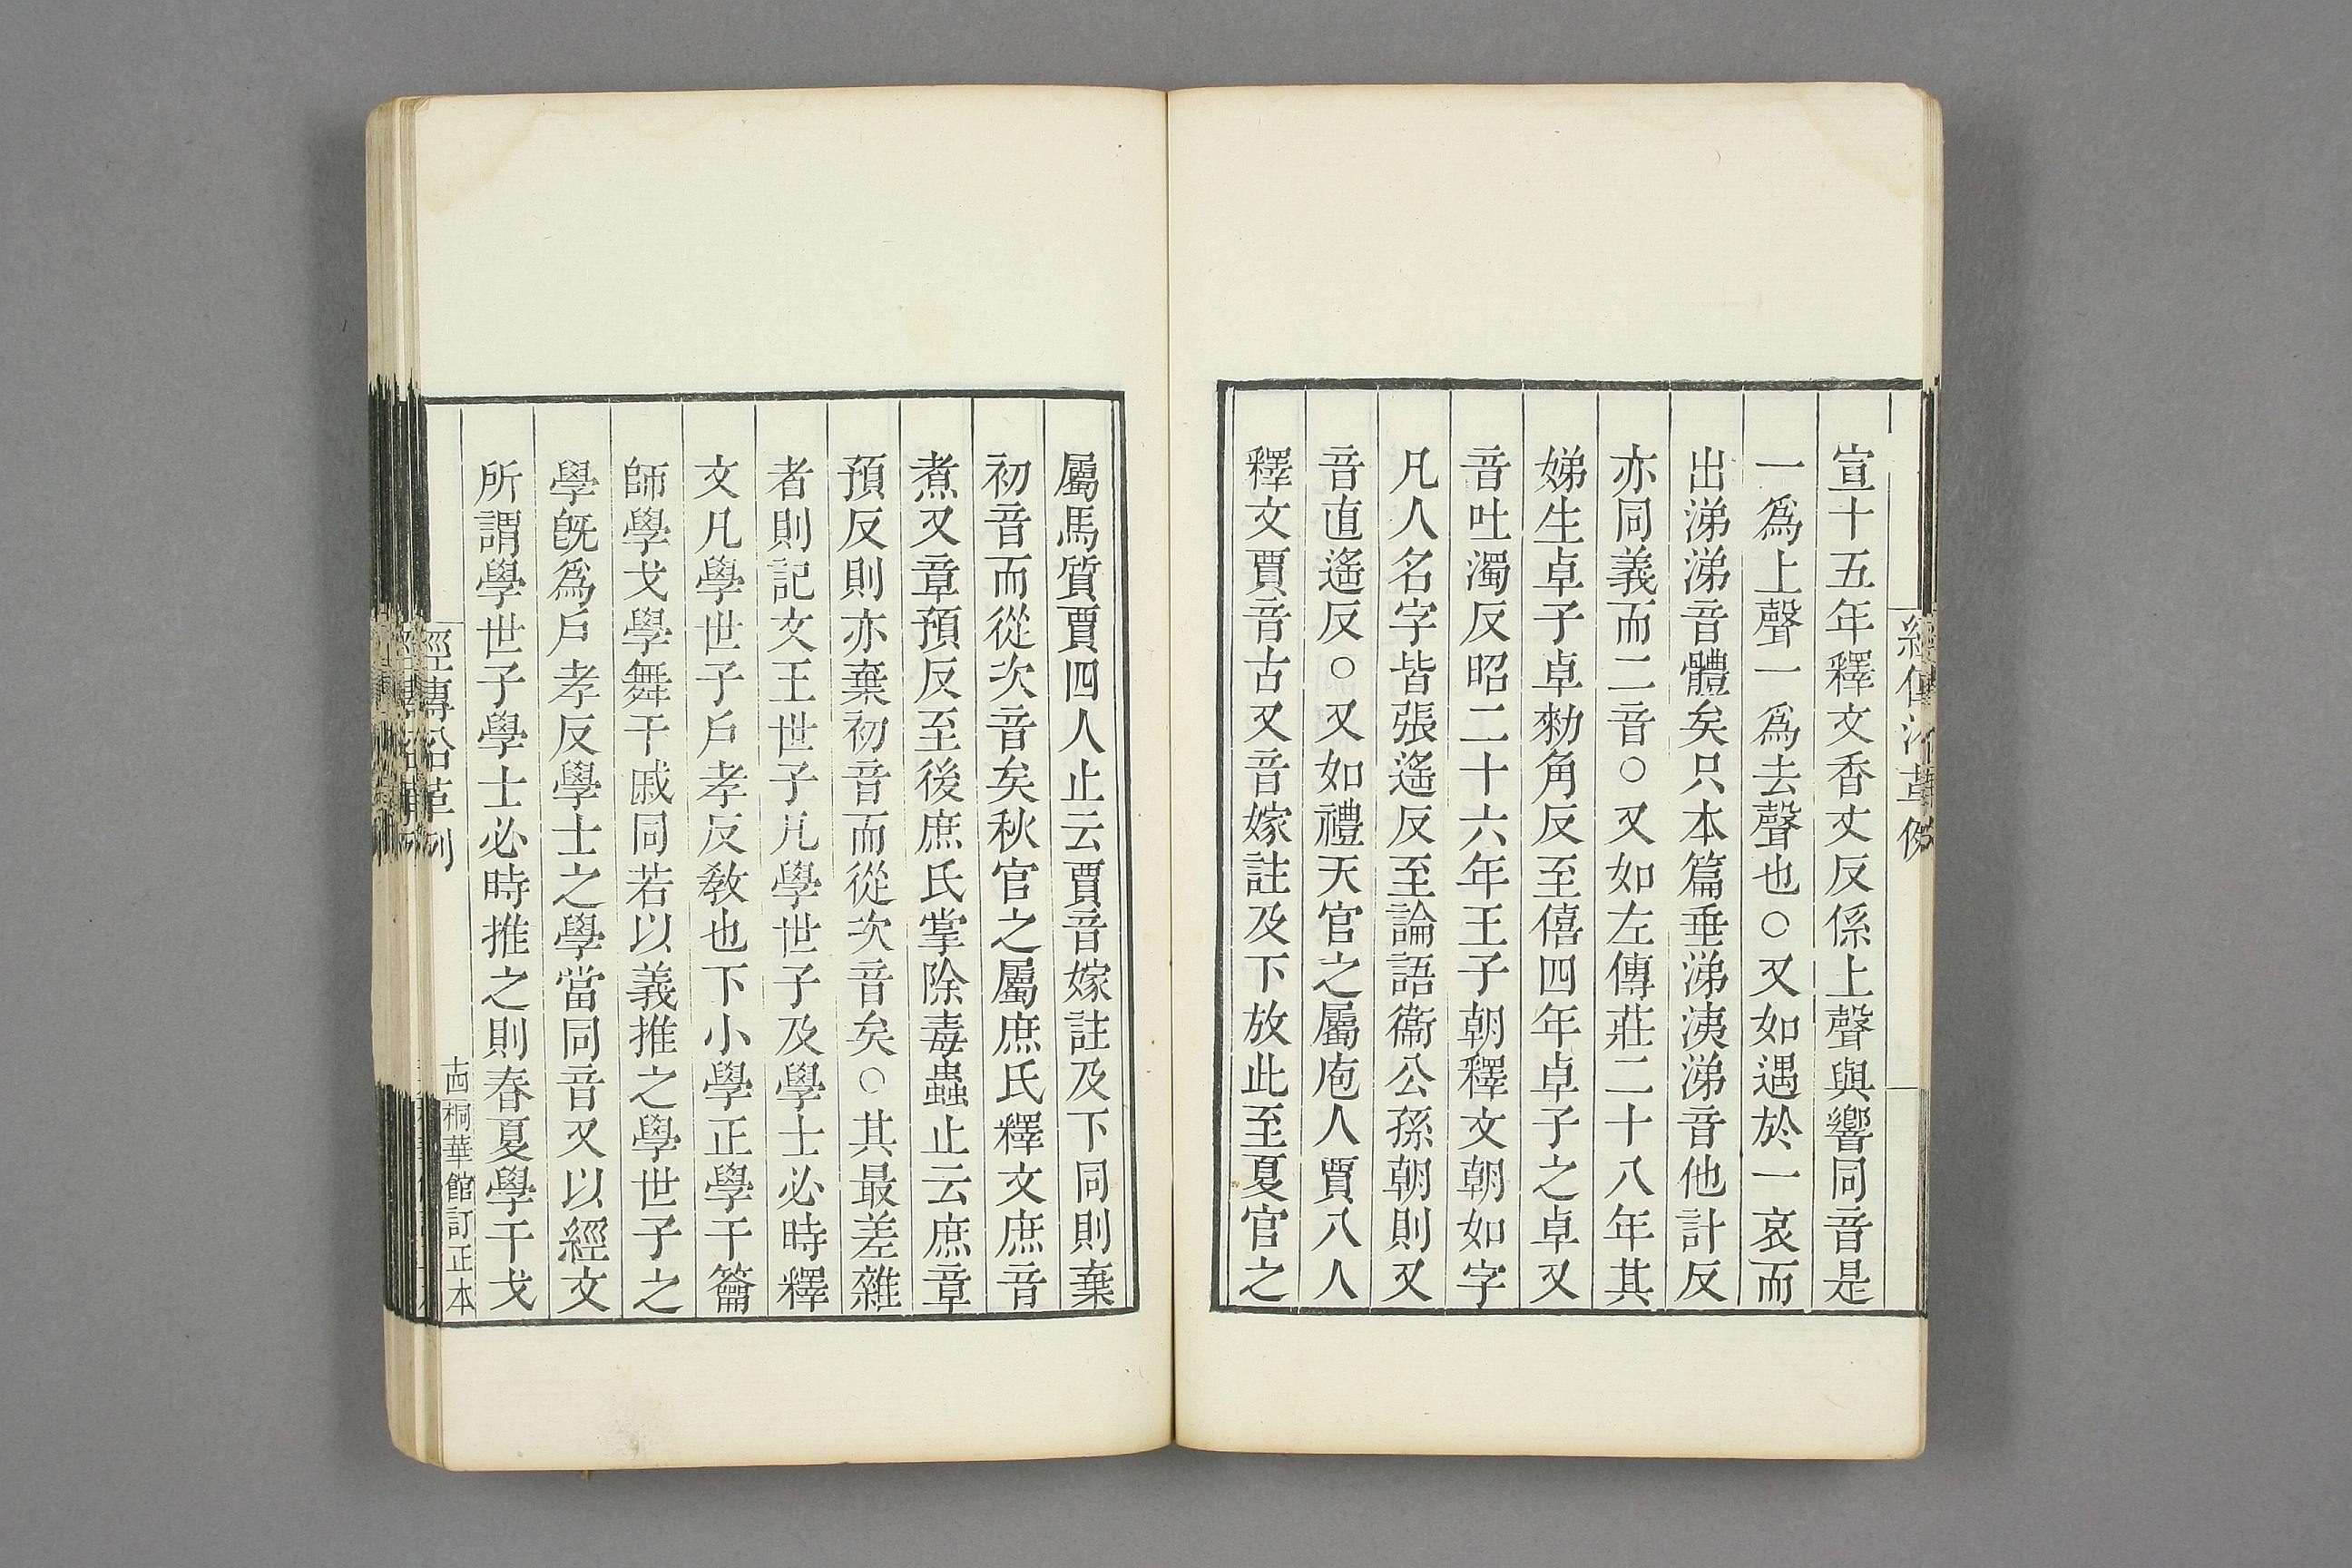 宣十五年釋文香丈反係上聲與響同音是
一爲上聲一爲去聲也○又如遇於一哀而
出涕涕音體矣只本篇垂涕洟涕音他計反
亦同義而二音○又如左傳莊二十八年其
娣生卓子卓勑角反至僖四年卓子之卓又
音吐濁反昭二十六年王子朝釋文朝如字
凡人名字皆張遙反至論語衞公孫朝則又
音直遙反○又如禮天官之屬庖人賈八人
釋文賈音古又音嫁註及下放此至夏官之
屬馬質賈四人止云賈音嫁註及下同則棄
初音而從次音矣秋官之屬庶氏釋文庶音
煮又章預反至後庶氏掌除毒蟲止云庶章
預反則亦棄初音而從次音矣○其最差雜
者則記文王世子凡學世子及學士必時釋
文凡學世子戶孝反敎也下小學正學干籥
師學戈學舞干戚同若以義推之學世子之
學旣爲戶孝反學士之學當同音又以經文
所謂學世子學士必時推之則春夏學干戈
經傳沿革列
十四 桐華館訂正本